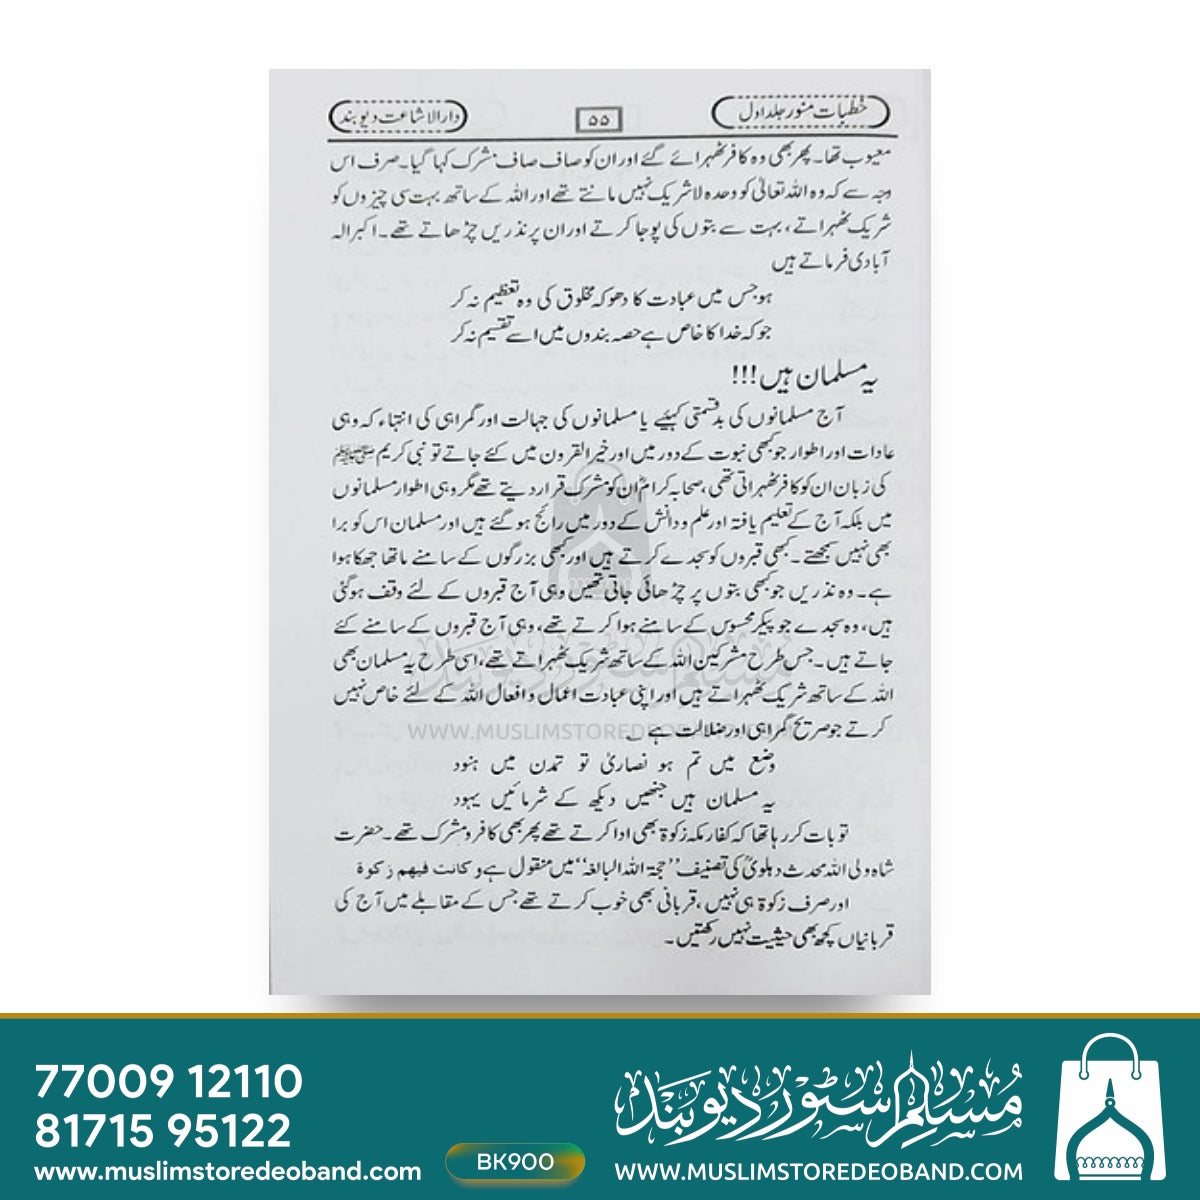 خطبات منور جلد اول
۵۵
دار الاشاعت دیوبند
معیوب تھا۔ پھر بھی وہ کافر ٹھہرائے گئے اور ان کو صاف صاف مشرک کہا گیا۔ صرف اس
وجہ سے کہ وہ اللہ تعالیٰ کو وحدہ لاشریک نہیں مانتے تھے اور اللہ کے ساتھ بہت سی چیزوں کو
شریک ٹھہراتے، بہت سے بتوں کی پوجا کرتے اور ان پر نذریں چڑھاتے تھے۔ اکبر الہ
آبادی فرماتے ہیں
ہو جس میں عبادت کا دھوکہ مخلوق کی وہ تعظیم نہ کر
جو کہ خدا کا خاص ہے حصہ بندوں میں اسے تقسیم نہ کر
یہ مسلمان ہیں!!!
آج مسلمانوں کی بدقسمتی کہیئے یا مسلمانوں کی جہالت اور گمراہی کی انتہاء کہ وہی
عادات اور اطوار جو کبھی نبوت کے دور میں اور خیر القرون میں کئے جاتے تو نبی کریم ﷺ
کی زبان ان کو کافر ٹھہراتی تھی، صحابہ کرامؓ ان کو مشرک قرار دیتے تھے مگر وہی اطوار مسلمانوں
میں بلکہ آج کے تعلیم یافتہ اور علم و دانش کے دور میں رائج ہو گئے ہیں اور مسلمان اس کو برا
بھی نہیں سمجھتے۔ کبھی قبروں کو سجدے کرتے ہیں اور کبھی بزرگوں کے سامنے ماتھا جھکا ہوا
ہے۔ وہ نذریں جو کبھی بتوں پر چڑھائی جاتی تھیں وہی آج قبروں کے لئے وقف ہو گئی
ہیں، وہ سجدے جو پیکر محسوس کے سامنے ہوا کرتے تھے، وہی آج قبروں کے سامنے کئے
جاتے ہیں۔ جس طرح مشرکین اللہ کے ساتھ شریک ٹھہراتے تھے، اسی طرح یہ مسلمان بھی
اللہ کے ساتھ شریک ٹھہراتے ہیں اور اپنی عبادت اعمال و افعال اللہ کے لئے خاص نہیں
کرتے جو صریح گمراہی اور ضلالت ہے ؎
وضع میں تم ہو نصاریٰ تو تمدن میں ہنود
یہ مسلمان ہیں جنھیں دیکھ کے شرمائیں یہود
تو بات کر رہا تھا کہ کفار مکہ زکوۃ بھی ادا کرتے تھے پھر بھی کافر و مشرک تھے۔ حضرت
شاہ ولی اللہ محدث دہلویؒ کی تصنیف "حجۃ اللہ البالغہ" میں منقول ہے و کانت فیهم زکوۃ
اور صرف زکوۃ ہی نہیں، قربانی بھی خوب کرتے تھے جس کے مقابلے میں آج کی
قربانیاں کچھ بھی حیثیت نہیں رکھتیں۔
مسلم سٹور دیوبند
WWW.MUSLIMSTOREDEOBAND.COM
77009 12110
81715 95122
www.muslimstoredeoband.com
BK900
مسلم سٹور دیوبند
WWW.MUSLIMSTOREDEOBAND.COM